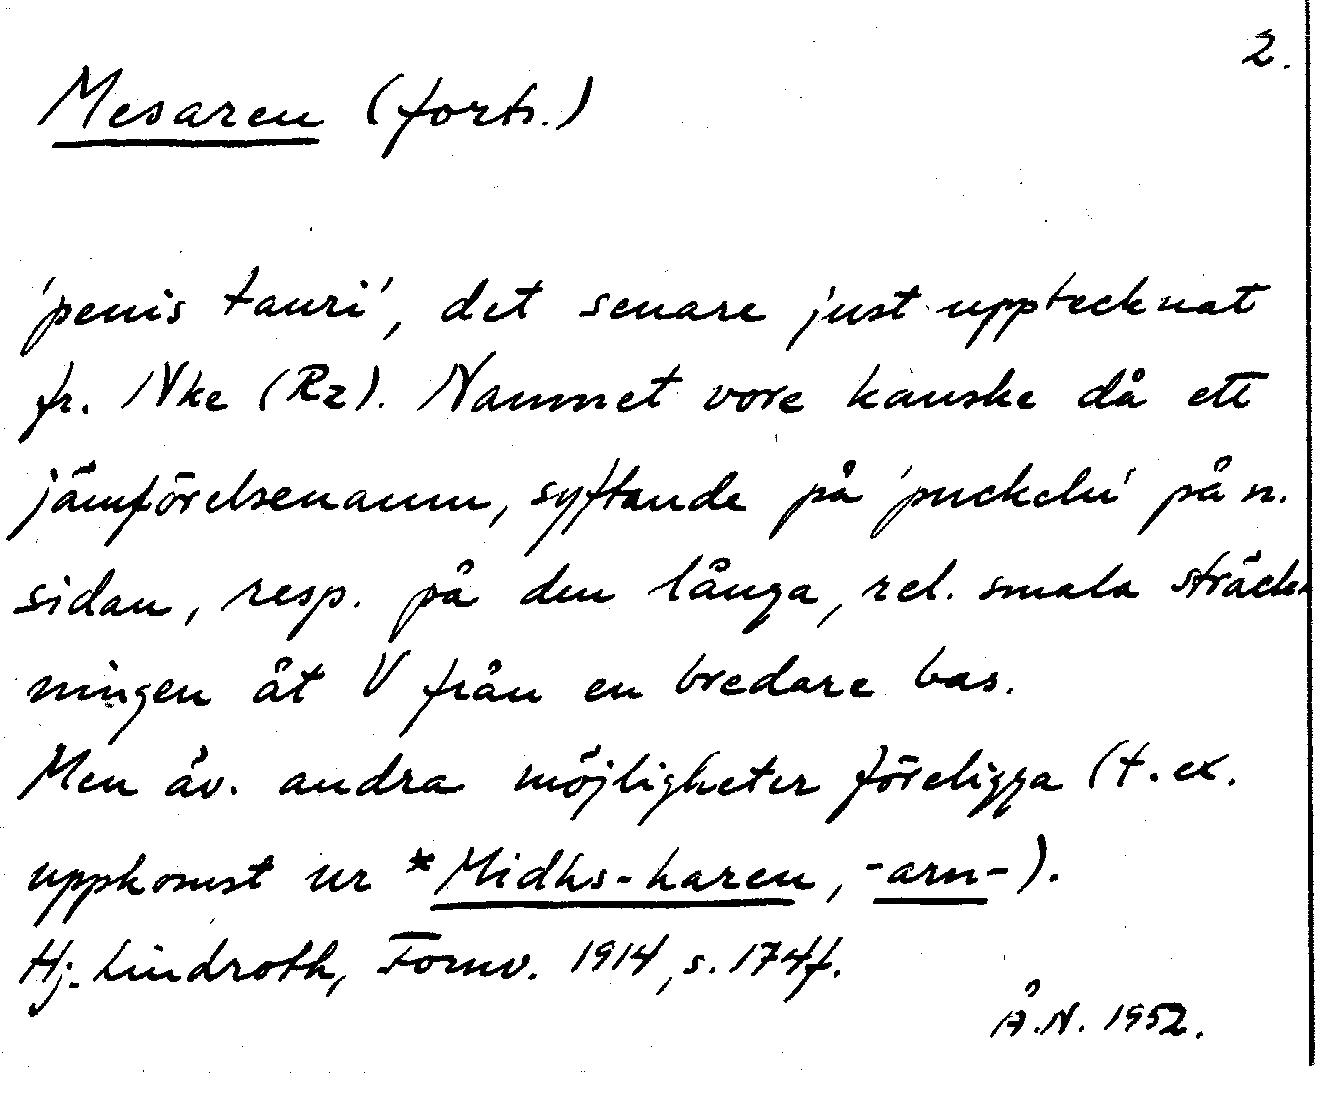 2.
Mesaren (forts.)
'penis tauri', det senare just upptecknat
fr. Nke (Rz). Namnet vore kanske då ett
jämförelsenamn, syftande på 'puckeln' på n.
sidan, resp. på den långa, rel. smala sträck-
ningen åt V från en bredare bas.
Men äv. andra möjligheter föreligga (t.ex.
uppkomst ur *Midhs-haren, -arn-).
Hj. Lindroth, Fornv. 1914, s. 174f.
Å.N. 1952.